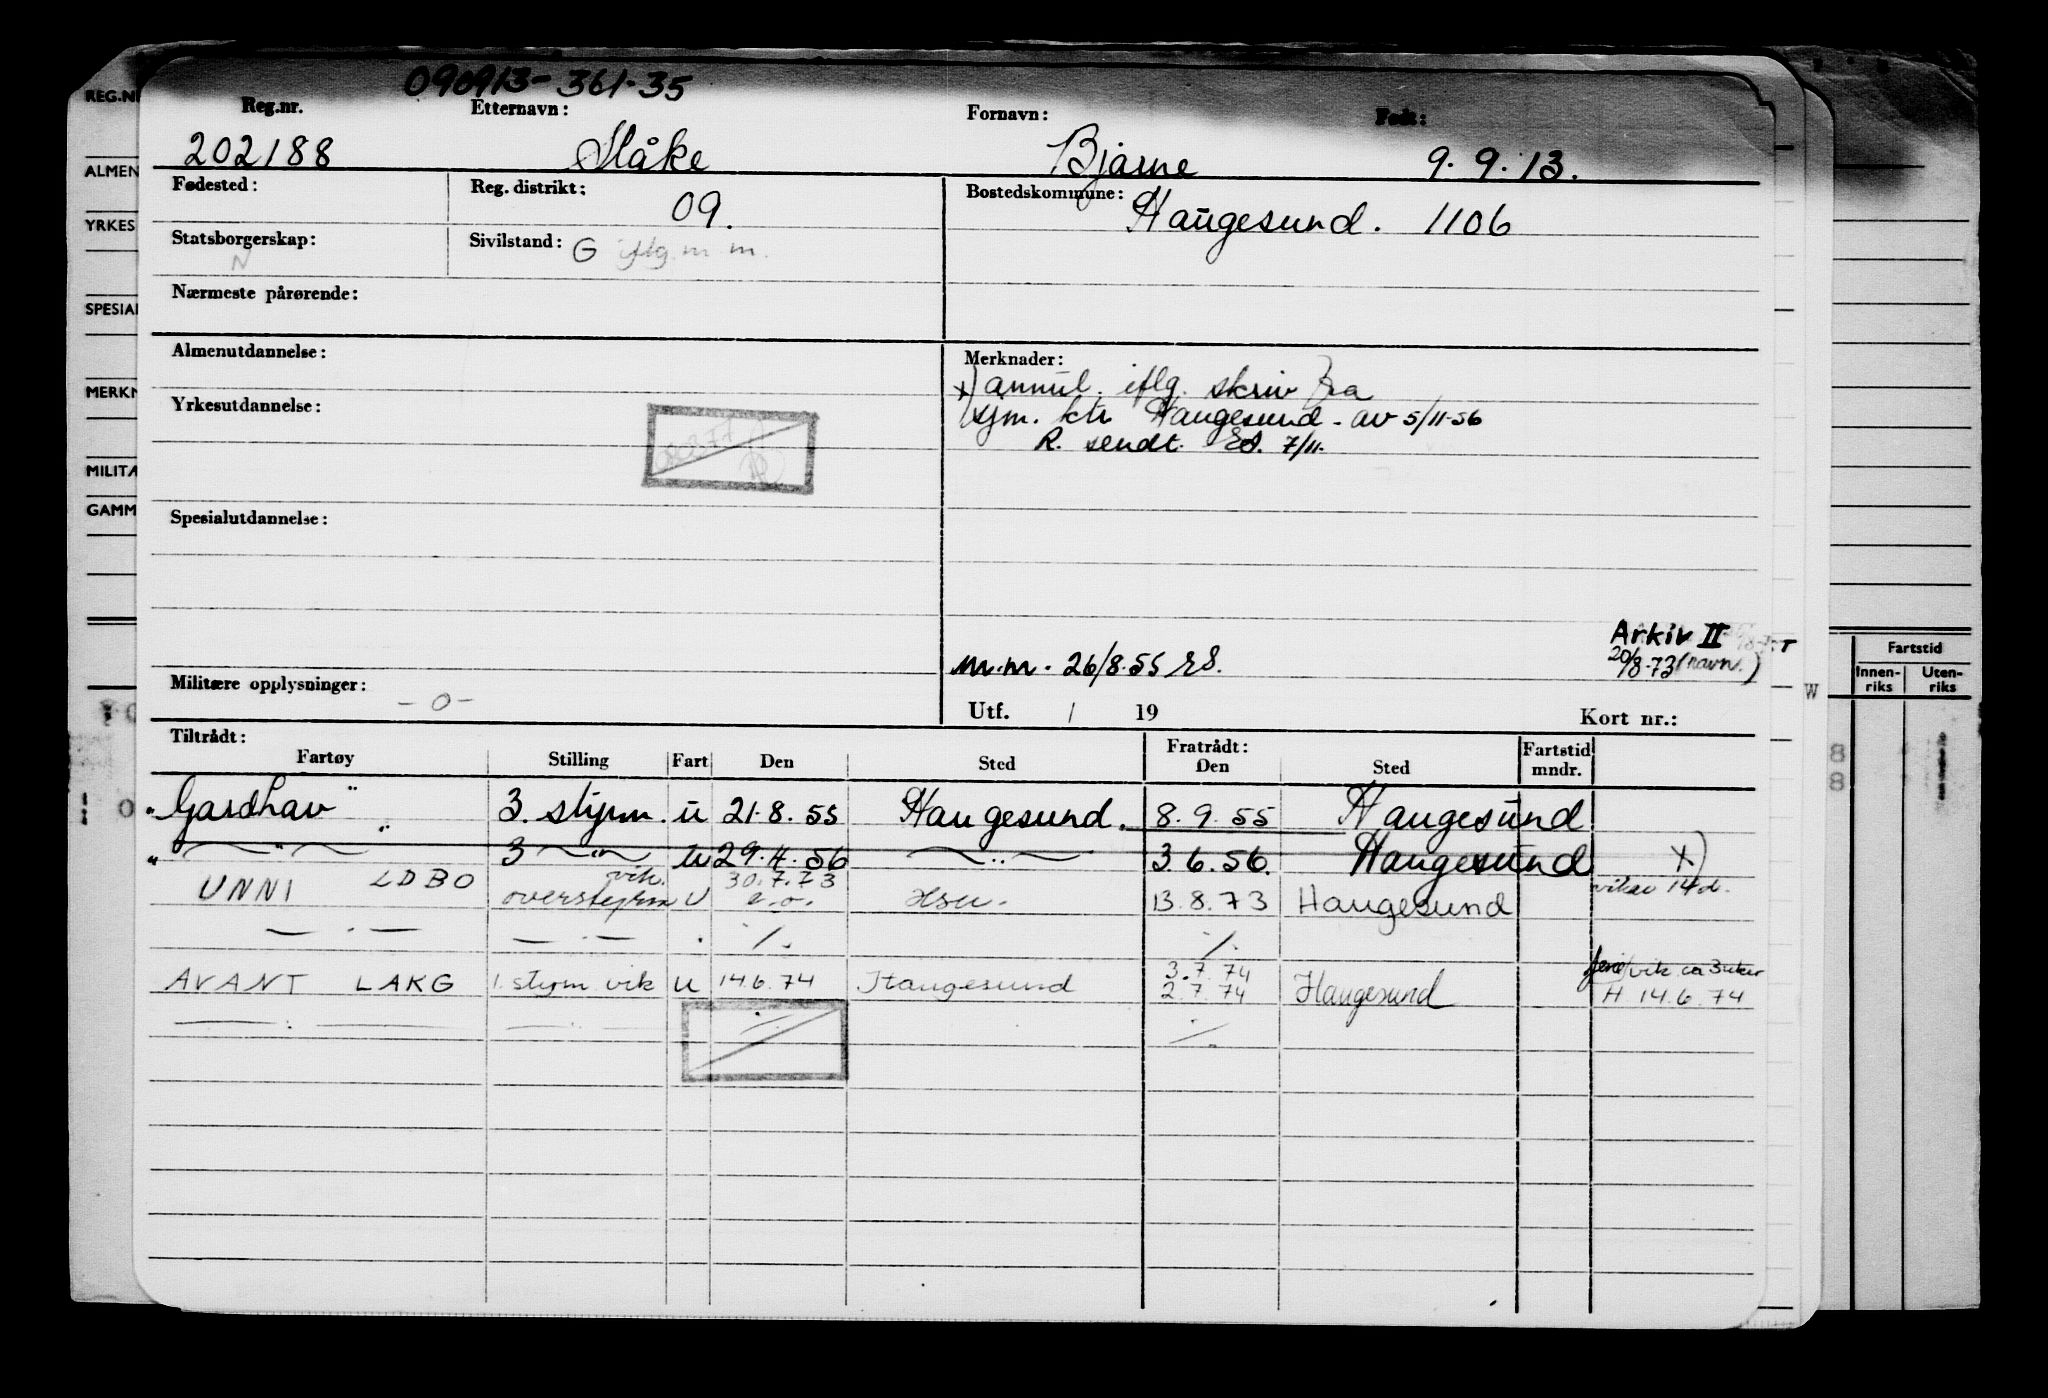 090913-361-35
REG.N
Reg.nr. Etternavn: Fornavn: Født:
202188 Måke Bjarne 9.9.13.
ALMEN
Fødested: Reg. distrikt: Bostedskommune:
09. Haugesund. 1106
YRKES
Statsborgerskap: Sivilstand:
N G iflg. m. m.
Nærmeste pårørende:
SPESIAL
Almenutdannelse: Merknader:
x) annul. iflg. skriv fra
MERKN
Yrkesutdannelse: sjm. ktr Haugesund - av 5/11-56
R. sendt. ES. 7/11.
MILITÆ
GAMM
Spesialutdannelse:
Arkiv II
m.m. 26/8.55 ES. 20/8-73 (navn.)
Fartstid
Innen-riks Uten-riks
Militære opplysninger: - 0 - W
Utf. / 19 Kort nr.:
Tiltrådt: Fratrådt:
Fartøy Stilling Fart Den Sted Den Sted Fartstid mndr.
"Gardhav" 3. styrm. u 21.8.55 Haugesund. 8.9.55 Haugesund
" — " — " 3 — " — u 29.4.56 — " — 3.6.56. Haugesund x)
UNNI LDBO overstyrm vik. U 30.7.73 a.o. Hsu. 13.8.73 Haugesund vikar 14 d.
— . — — . — . ·/. ·/.
AVANT LAKG 1. styrm vik u 14.6.74 Haugesund 3.7.74 2.7.74 Haugesund ferievik ca 3 uker H 14.6.74
— : — — : — ·/. ·/.